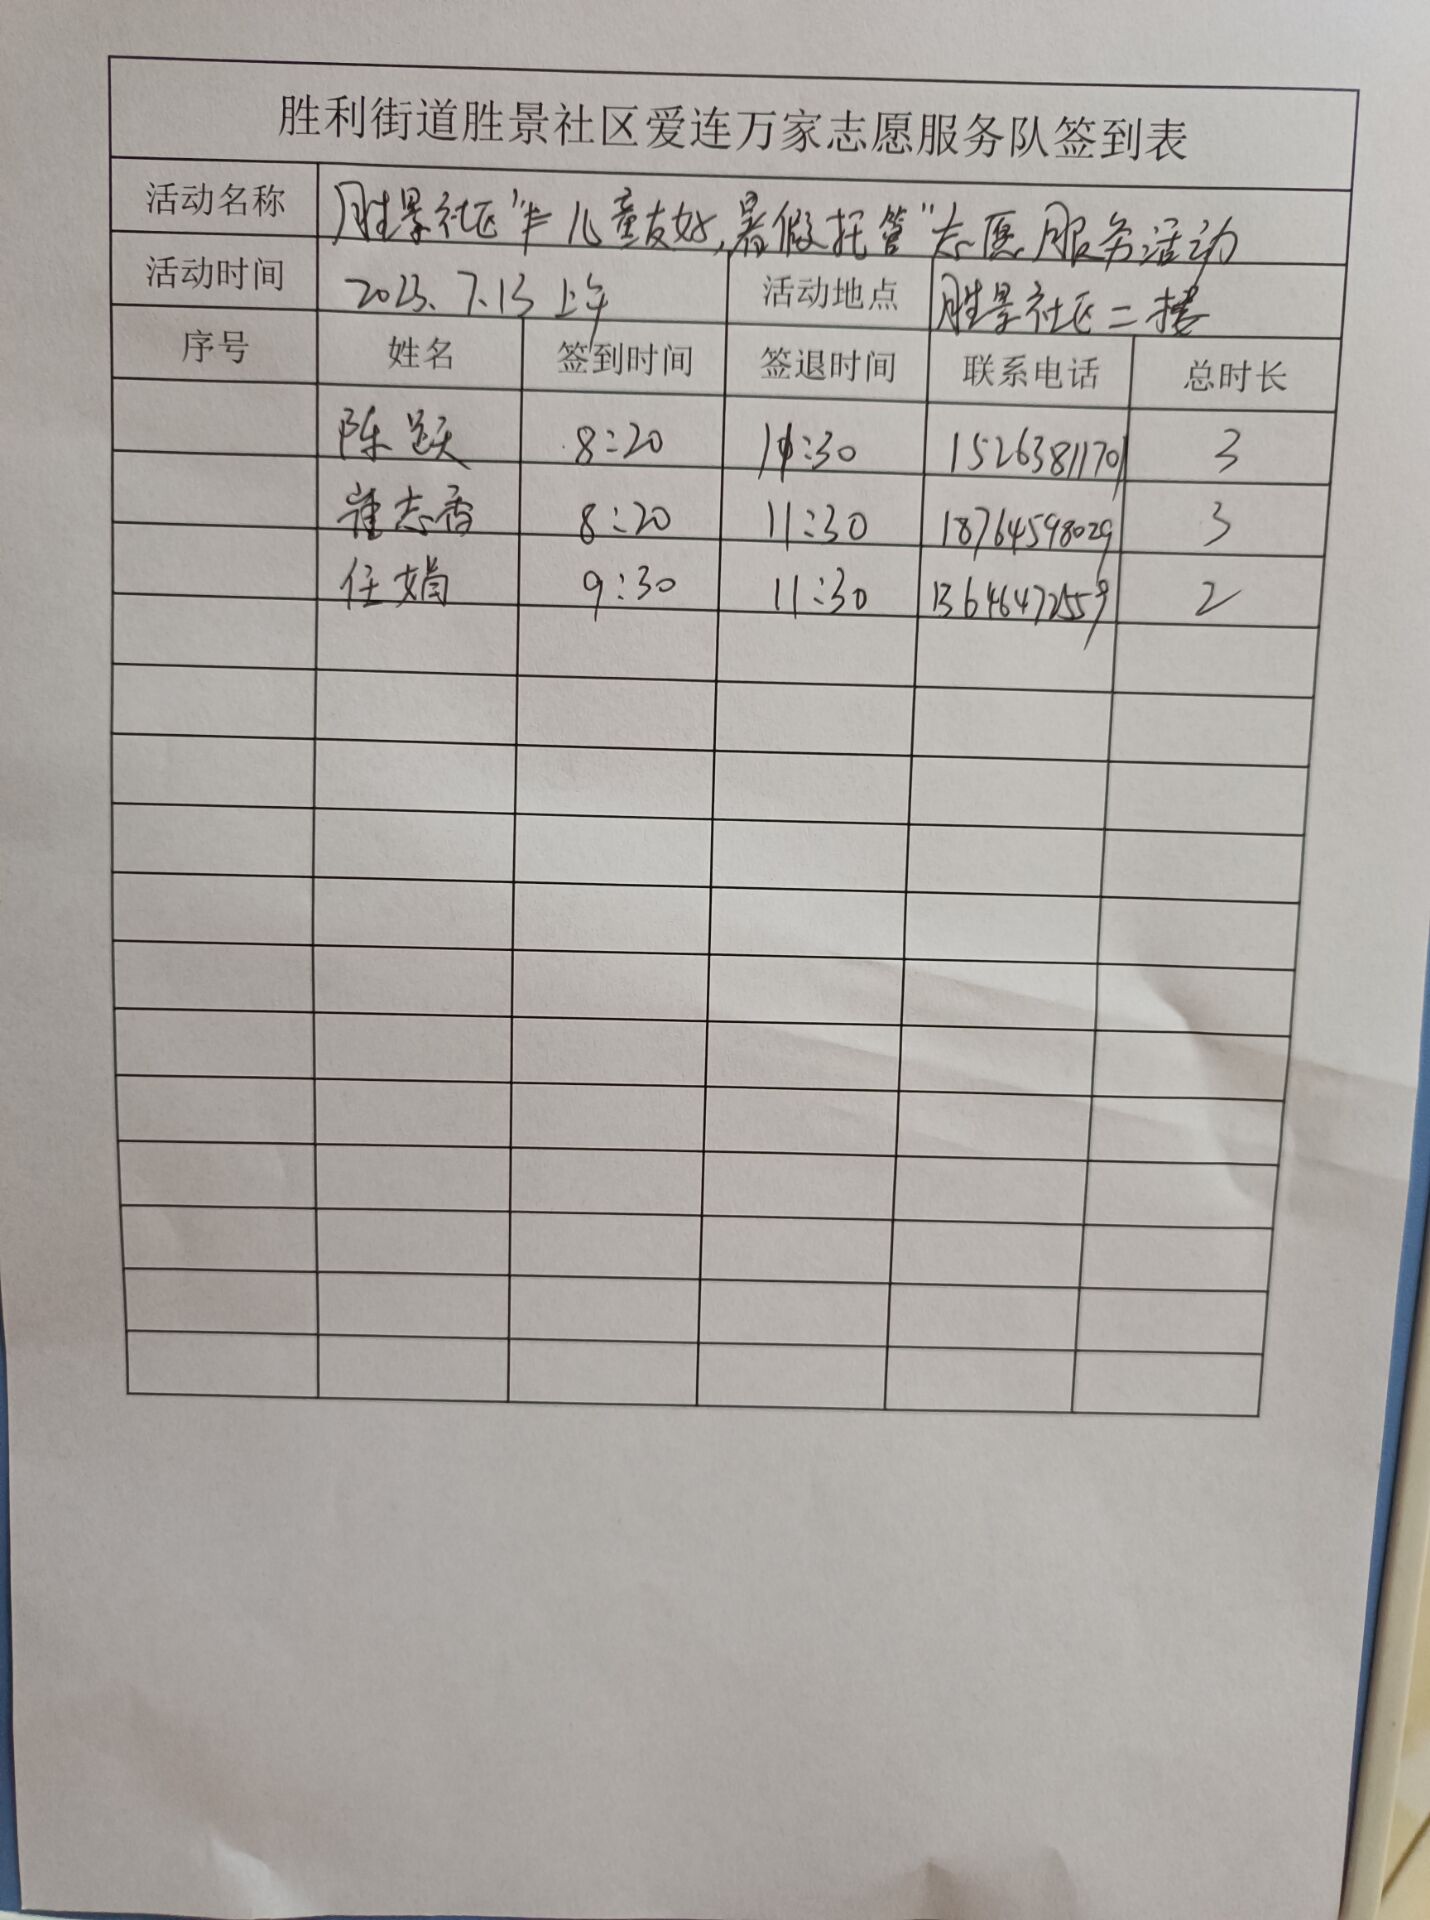 胜利街道胜景社区爱连万家志愿服务队签到表
活动名称 胜景社区"儿童友好,暑假托管"志愿服务活动
活动时间 2023.7.13上午 活动地点 胜景社区二楼
序号 姓名 签到时间 签退时间 联系电话 总时长
陈跃 8:20 11:30 15263811701 3
崔志香 8:20 11:30 18764598029 3
任娟 9:30 11:30 13646472559 2